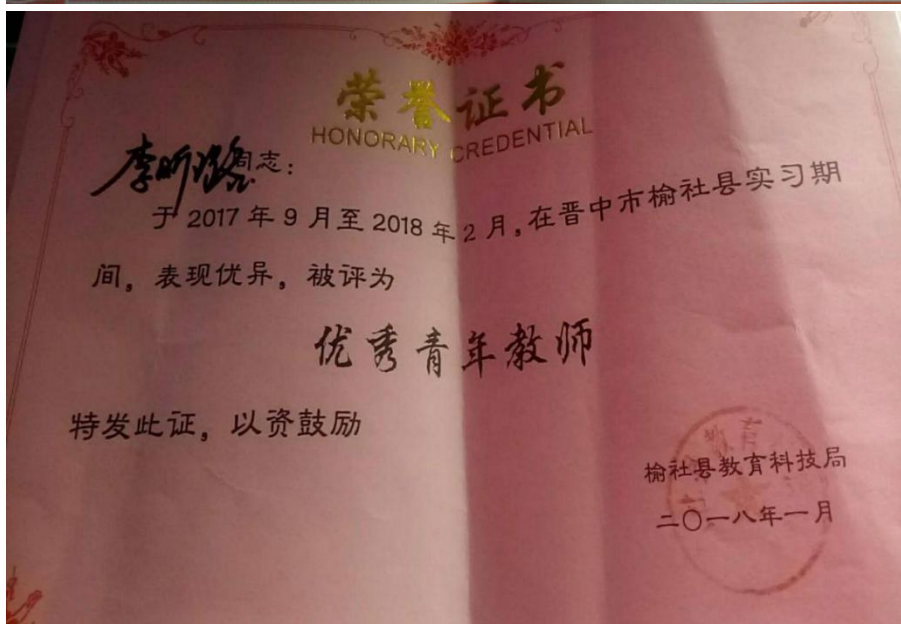 荣誉证书
HONORARY CREDENTIAL
李昕璐同志：
于2017年9月至2018年2月，在晋中市榆社县实习期
间，表现优异，被评为
优秀青年教师
特发此证，以资鼓励
榆社县教育科技局
二〇一八年一月